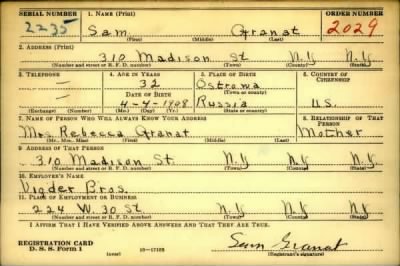 SERIAL NUMBER 1. NAME (Print) ORDER NUMBER
2235 Sam Granat 2029
(First) (Middle) (Last)
2. ADDRESS (Print)
310 Madison St N.Y N.Y
(Number and street or R. F. D. number) (Town) (County) (State)
3. TELEPHONE 4. AGE IN YEARS 5. PLACE OF BIRTH 6. COUNTRY OF CITIZENSHIP
— 32 Ostrowa
DATE OF BIRTH (Town or county)
— 4-4-1908 Russia U.S.
(Exchange) (Number) (Mo.) (Day) (Yr.) (State or country)
7. NAME OF PERSON WHO WILL ALWAYS KNOW YOUR ADDRESS 8. RELATIONSHIP OF THAT PERSON
Mrs. Rebecca Granat Mother
(Mr., Mrs., Miss) (First) (Middle) (Last)
9. ADDRESS OF THAT PERSON
310 Madison St. N.Y N.Y N.Y
(Number and street or R. F. D. number) (Town) (County) (State)
10. EMPLOYER'S NAME
Vigder Bros.
11. PLACE OF EMPLOYMENT OR BUSINESS
224 W. 30 St N.Y N.Y N.Y
(Number and street or R. F. D. number) (Town) (County) (State)
I AFFIRM THAT I HAVE VERIFIED ABOVE ANSWERS AND THAT THEY ARE TRUE.
REGISTRATION CARD
D. S. S. Form 1 (over) 16—17105 Sam Granat
(Registrant's signature)